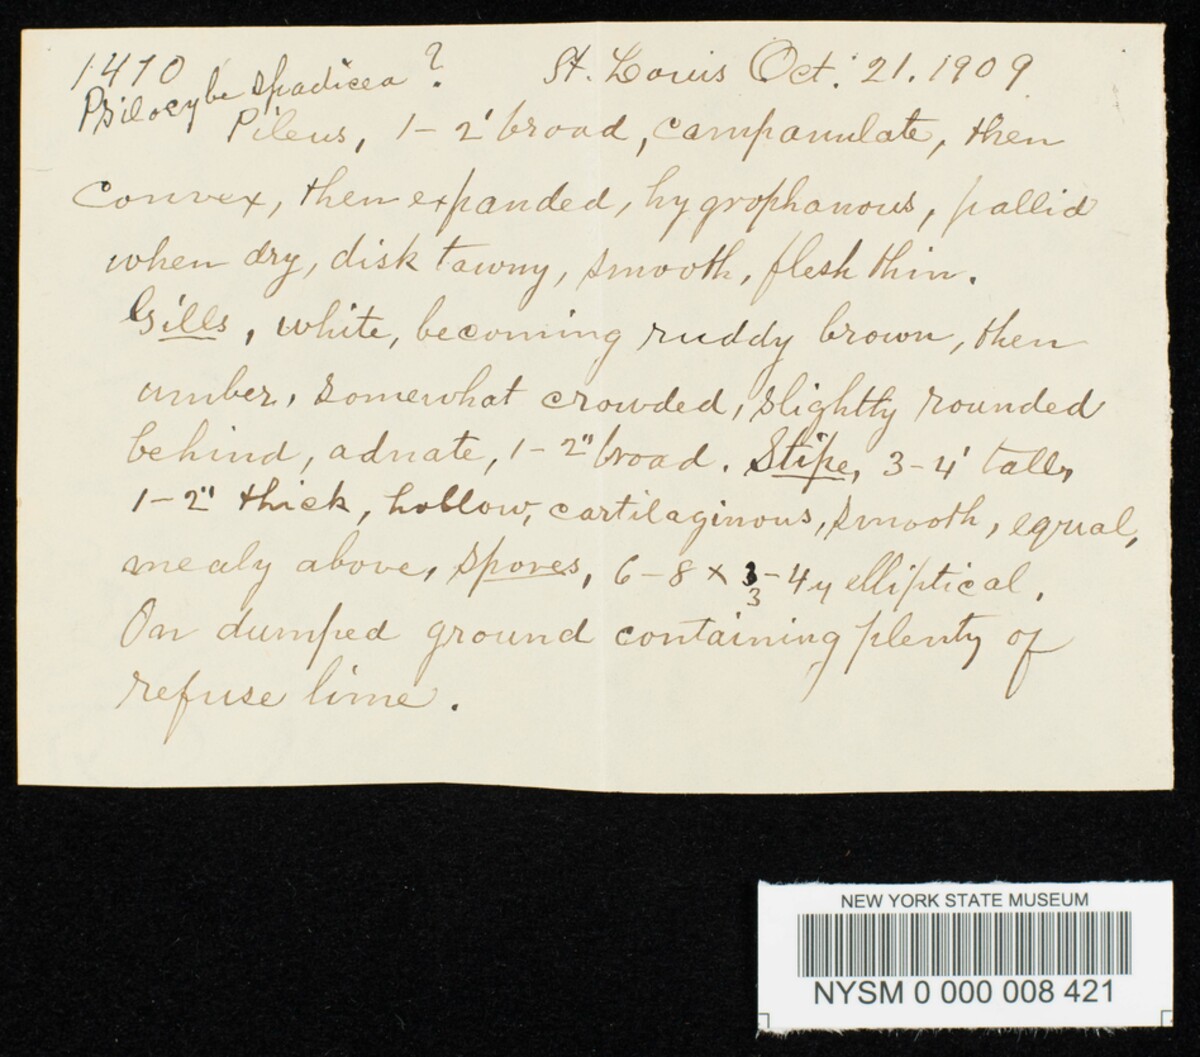 1410 St. Louis Oct. 21. 1909
Psilocybe spadicea ?
Pileus, 1-2' broad, campanulate, then
convex, then expanded, hygrophanous, pallid
when dry, disk tawny, smooth, flesh thin.
Gills, white, becoming ruddy brown, then
umber, somewhat crowded, slightly rounded
behind, adnate, 1-2" broad. Stipe, 3-4' tall,
1-2" thick, hollow, cartilaginous, smooth, equal,
mealy above, spores, 6-8 x 3-4 µ elliptical.
3
On dumped ground containing plenty of
refuse lime.
NEW YORK STATE MUSEUM
NYSM 0 000 008 421